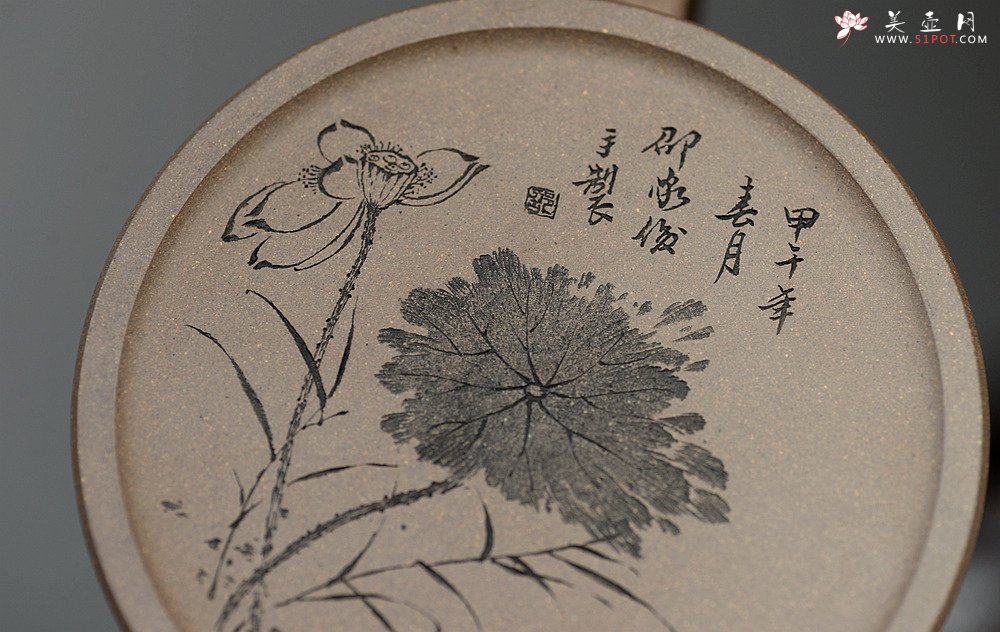 甲午年
春月
邵家俊
手製
美壶网
WWW.51POT.COM